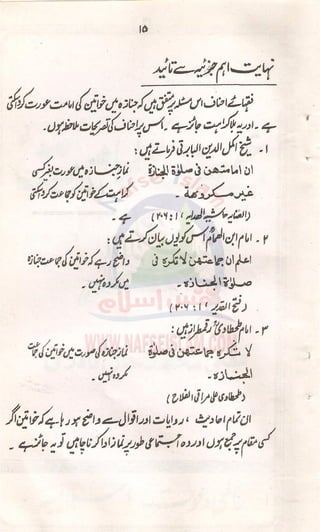 ۱۵
نہایت اہم جزئیہ سے تائید
فقہائے احناف اس مسئلہ پر متفق ہیں کہ جنازہ میں خواتین کی امامت عورت کرواسکتی
ہے ۔ اور یہ بلا کراہت جائز ہے ۔ اس پر احناف کی تصریحات ملاحظہ ہوں ۔
۱ ۔ شیخ اکمل الدین البابرتی فرماتے ہیں :
ان امامتهن فى صلوٰة الجنازة نماز جنازہ میں عورت بغیر کسی
غير مكروهة ۔ کراہت کے خواتین کو جماعت کرواسکتی
(العنایہ حاشیہ الہدایہ ، ۱ : ۲۰۶) ہے ۔
۲ ۔ امام ابن الھمام اس کو یوں بیان کرتے ہیں :
اعلم ان جماعتهن لا تكره فى واضح رہے کہ خواتین کی جماعت جنازہ
صلوٰة الجنازة ۔ میں مکروہ نہیں ۔
(فتح القدیر ۱ : ۲۰۶)
۳ ۔ امام طحطاوی رقمطراز ہیں :
لا تكره جماعتهن فى صلوٰة نماز جنازہ کی صورت میں خواتین کی جماعت
الجنازة ۔ مکروہ نہیں ۔
(طحطاوی علی مراقی الفلاح)
ان تمام احادیث ، روایات اور اقوال سے واضح ہو رہا ہے کہ خواتین اگر
کسی مقام پر جمع ہوں اور وہ اجتماعی طور پر نماز ادا کرنا چاہیں تو یہ جائز ہے ۔
نفس اسلام
WWW.NAFSEISLAM.COM